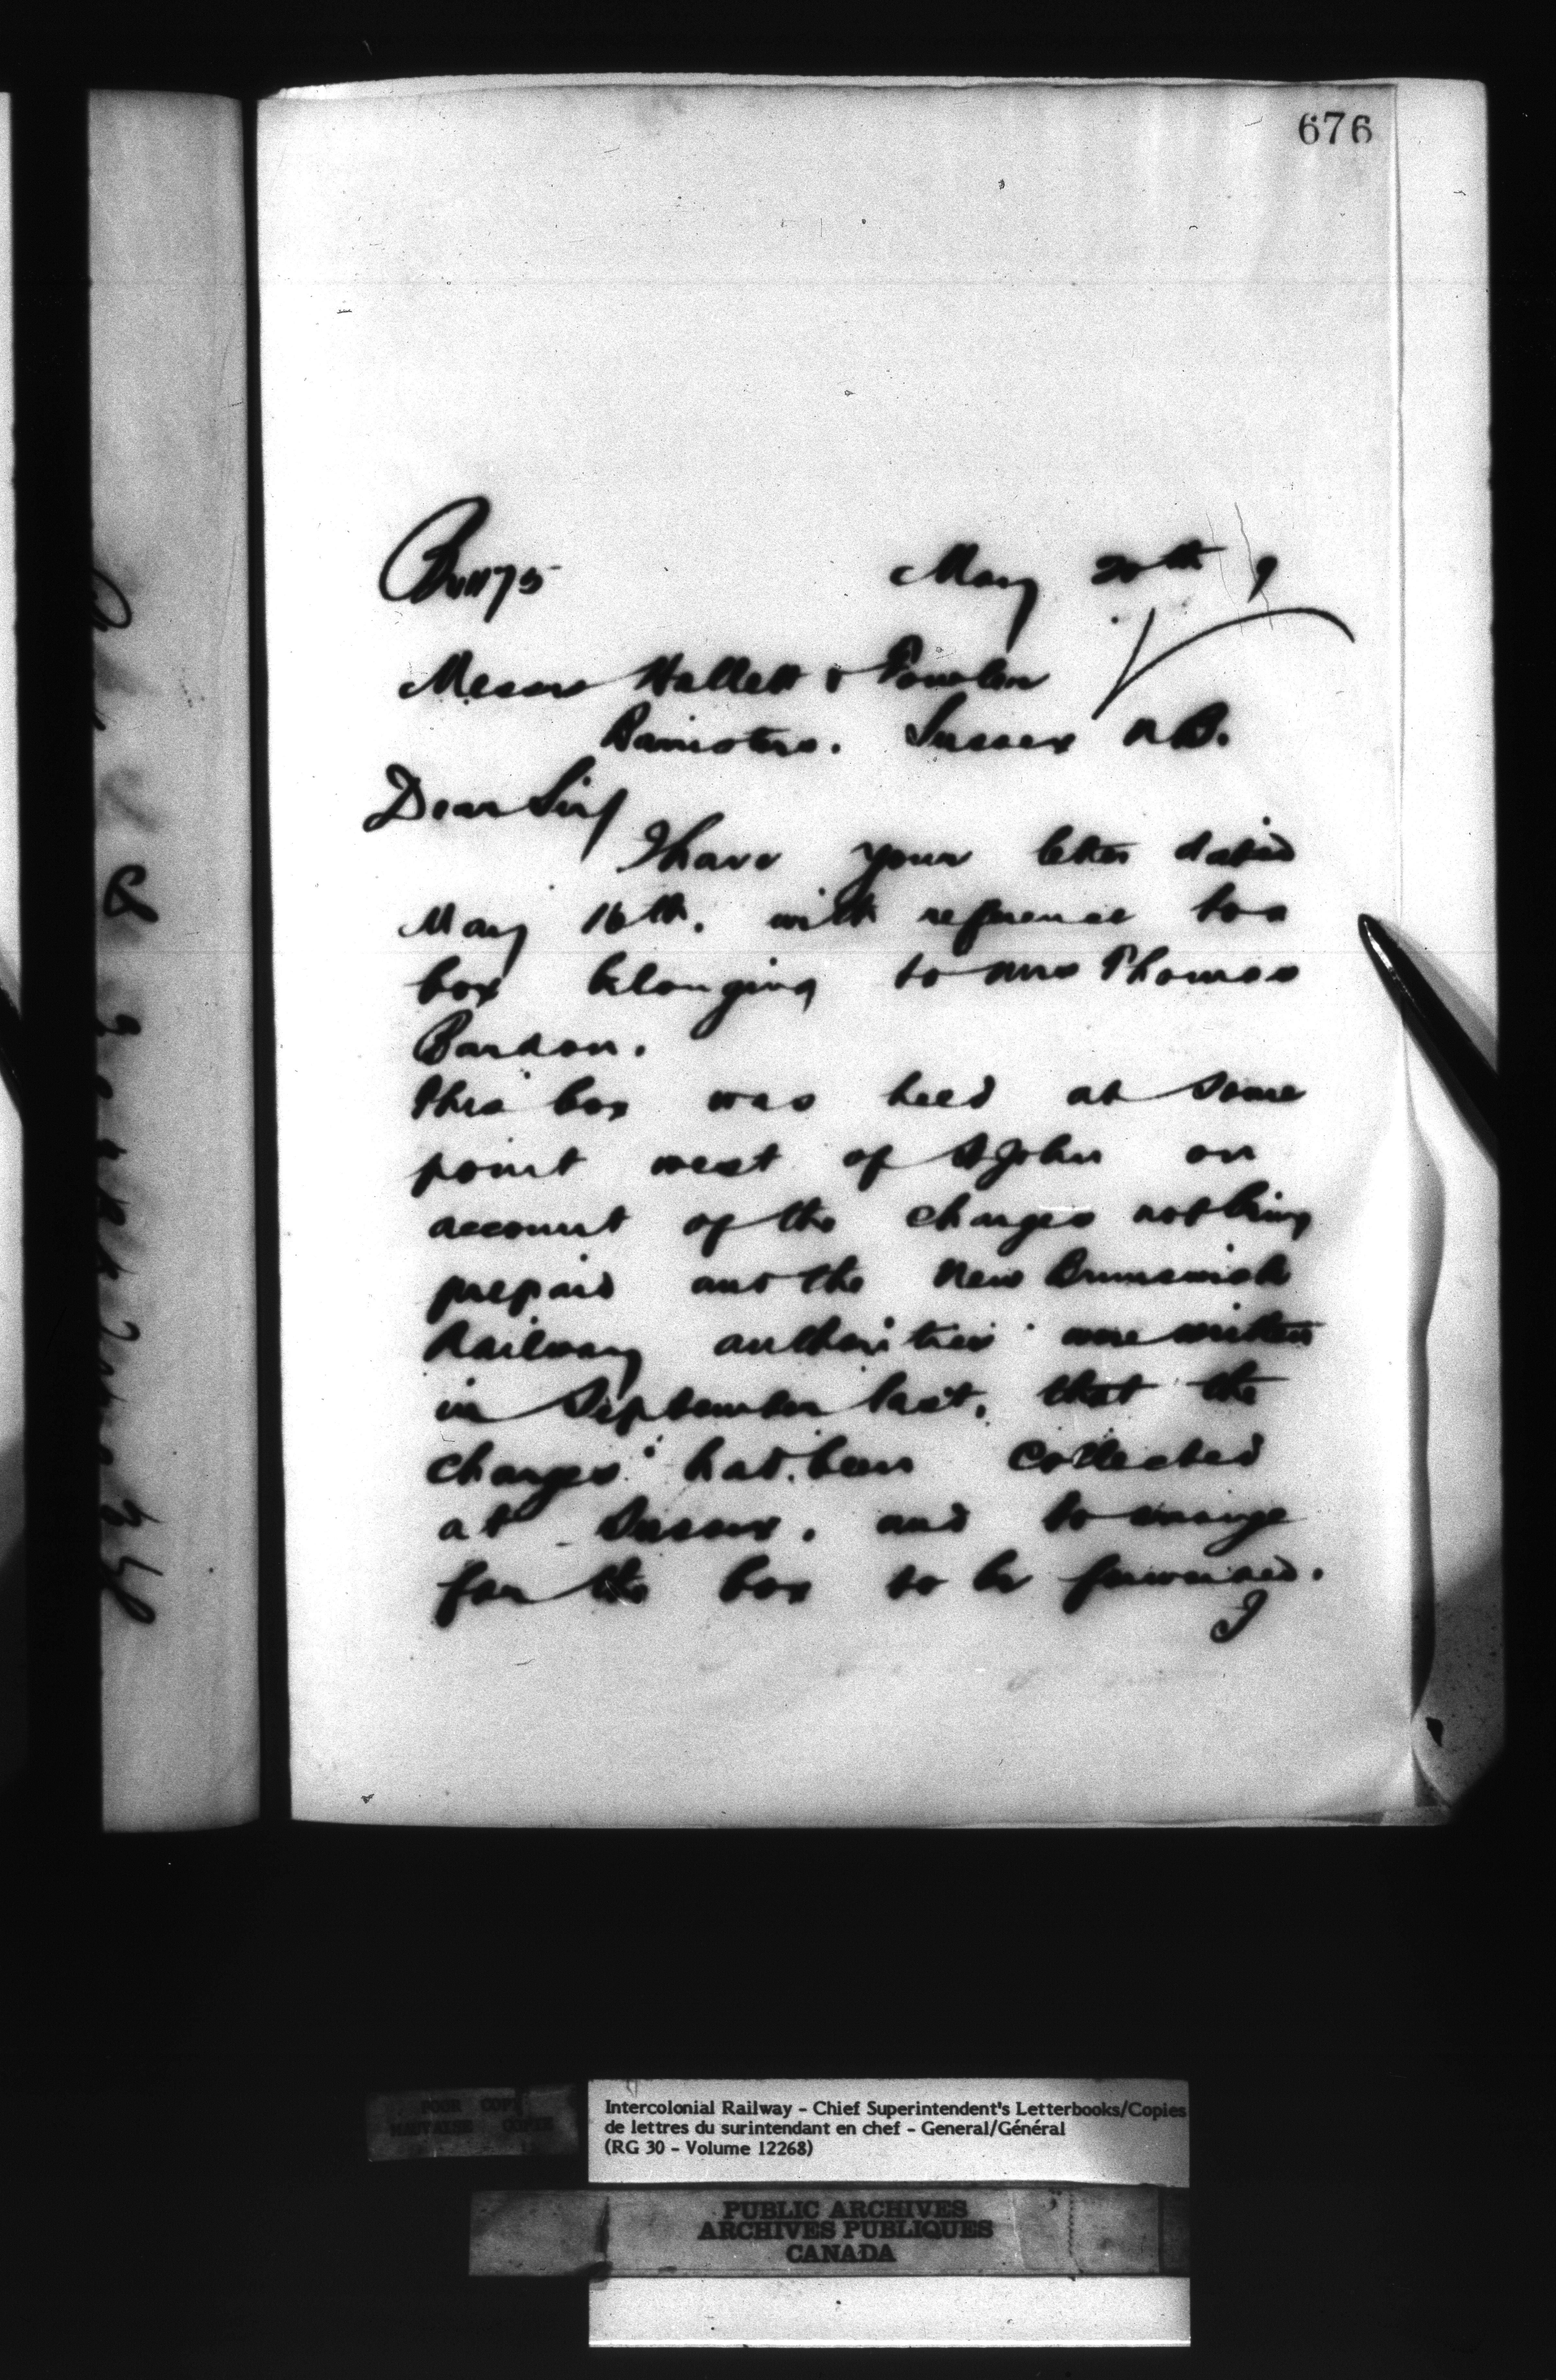 676
May 20th 9
Messrs Hallett & Fowler
Barristers. Sussex N.B.
Dear Sirs
I have your letter dated
May 16th. with reference to a
box belonging to Mrs Thomas
this box was held at some
point west of St John on
account of the charges not being
prepaid and the New Brunswick
Railway authorities were written
in September last, that the
charges had been collected
at Sussex. and to arrange
for the box to be forwarded.
I
POOR COPY
MAUVAISE COPIE
Intercolonial Railway - Chief Superintendent's Letterbooks/Copies
de lettres du surintendant en chef - General/Général
(RG 30 - Volume 12268)
PUBLIC ARCHIVES
ARCHIVES PUBLIQUES
CANADA